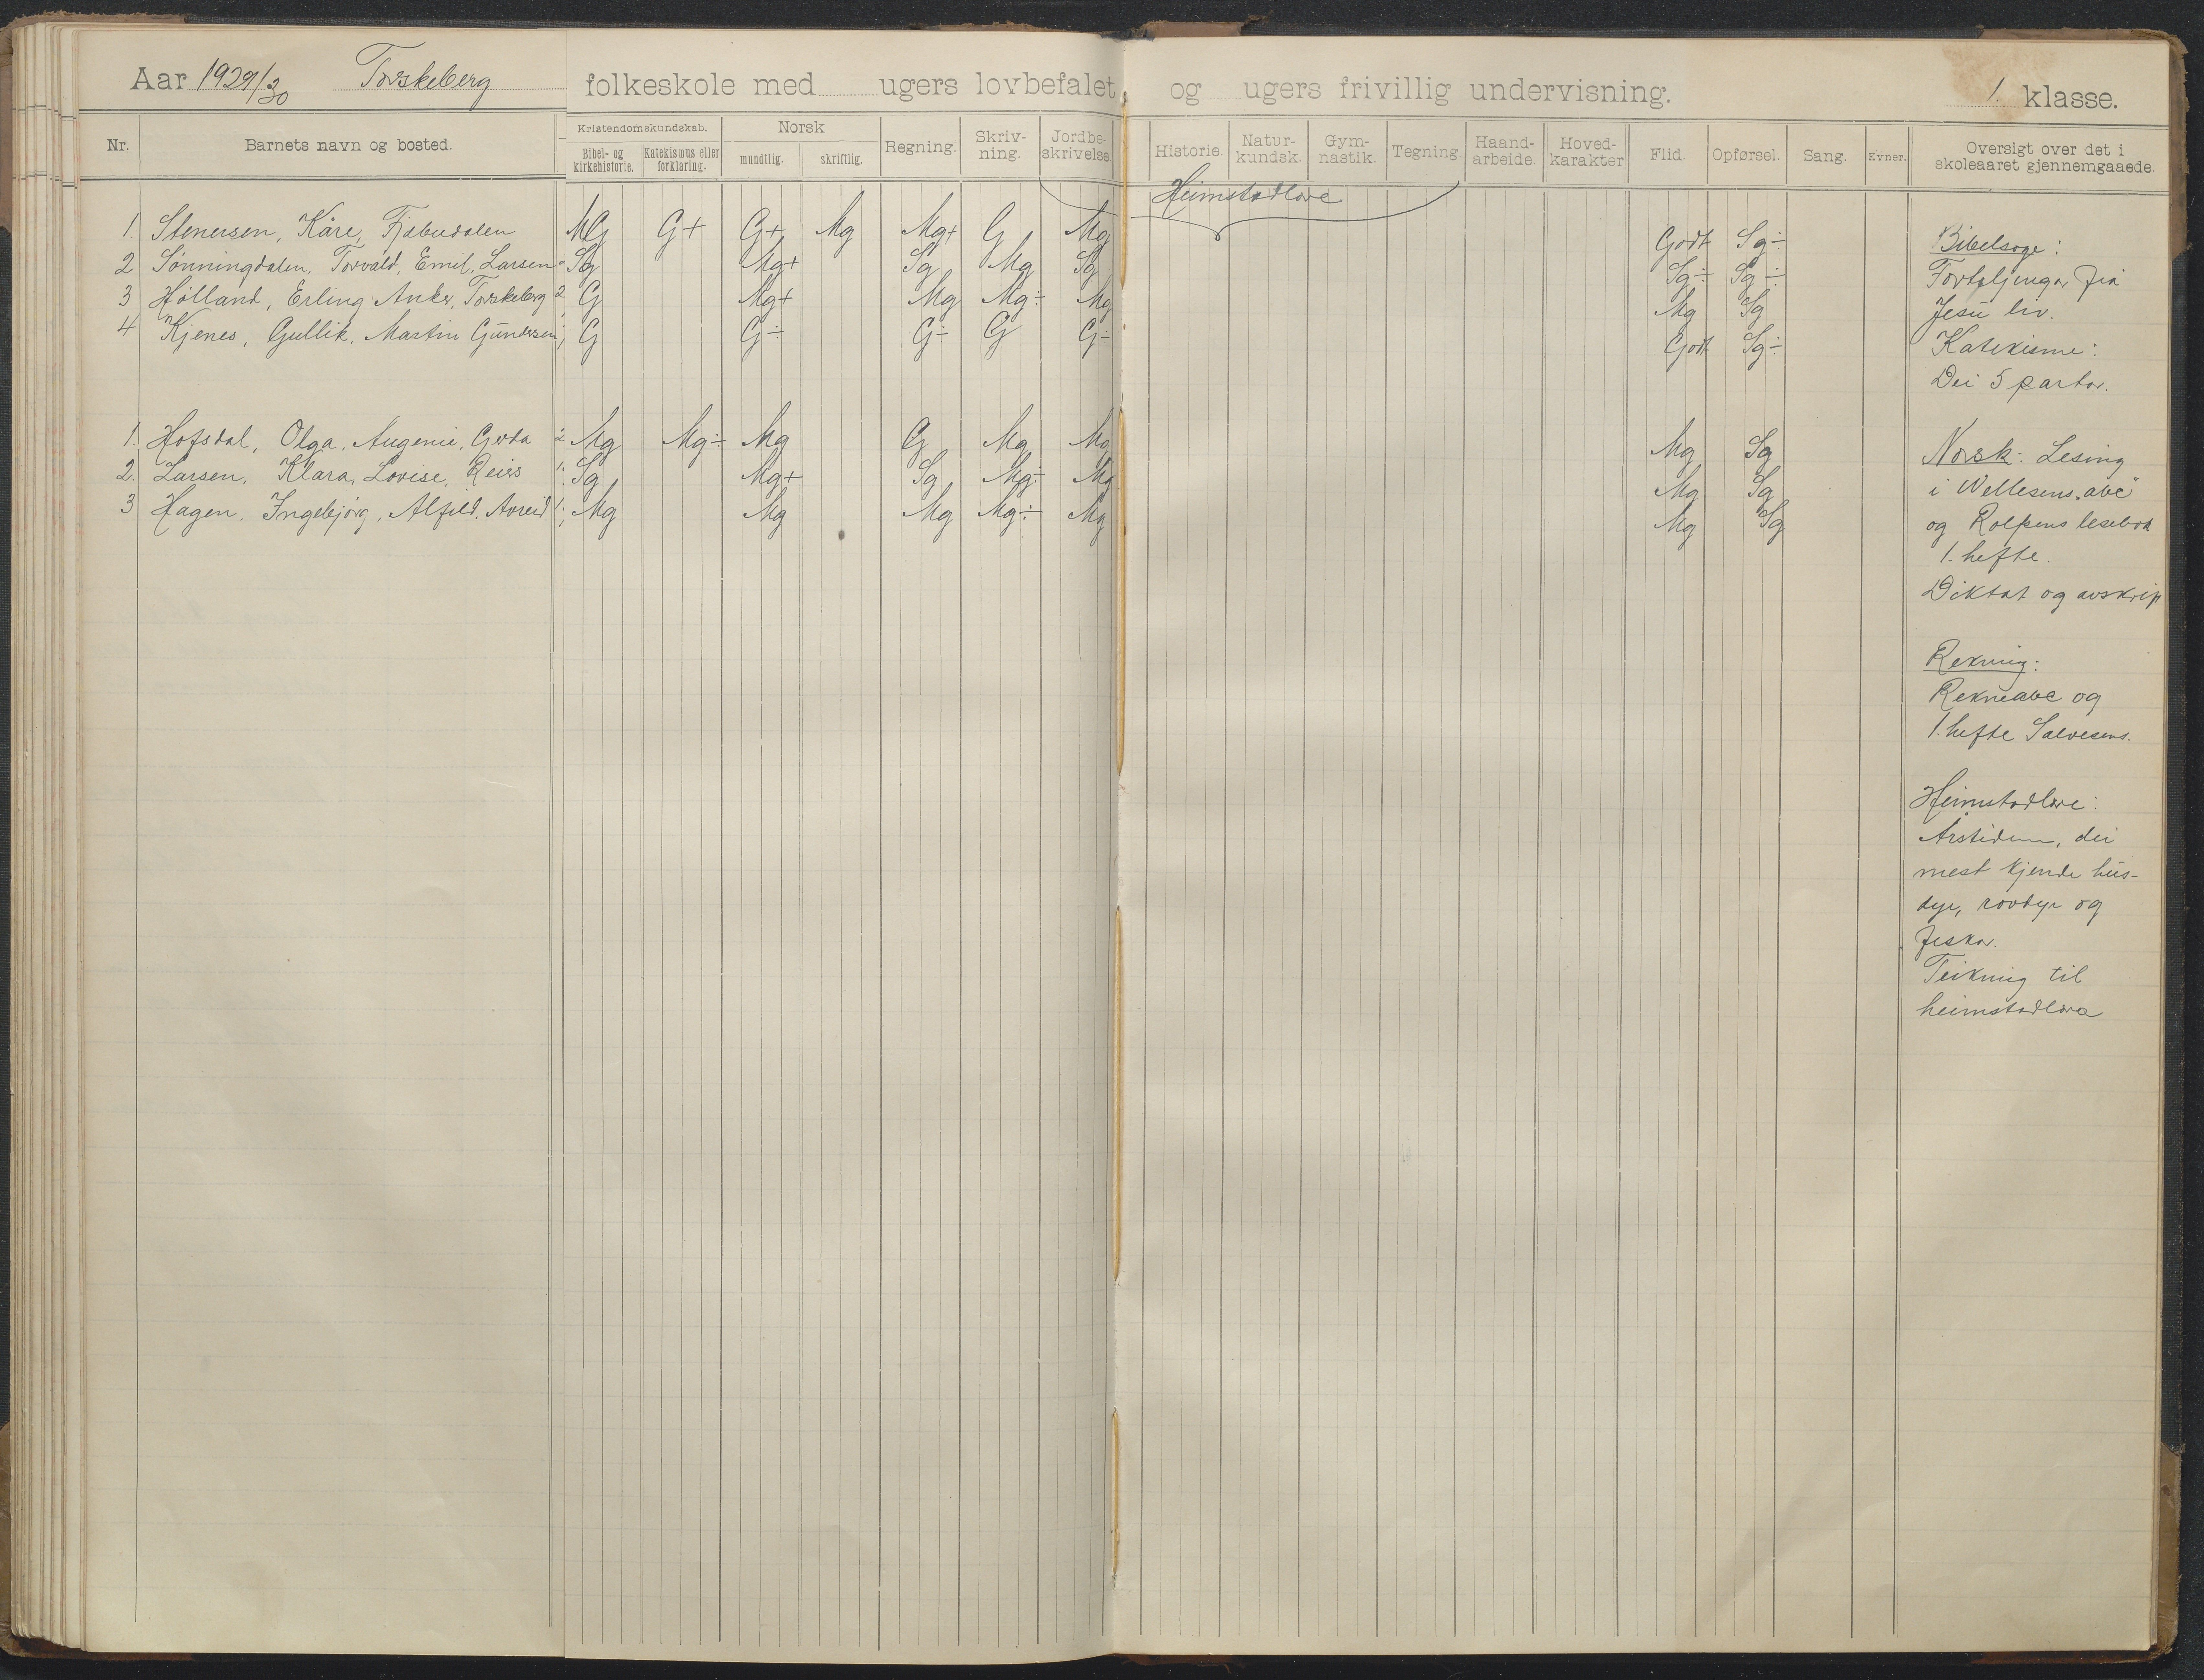 Aar 1929/30 Torskeberg folkeskole med ugers lovbefalet og ugers frivillig undervisning. 1. klasse.
Nr. Barnets navn og bosted. Kristendomskundskab. Bibel- og kirkehistorie. Katekismus eller forklaring. Norsk mundtlig. skriftlig. Regning. Skriv-ning. Jordbe-skrivelse. Historie. Natur-kundsk. Gym-nastik. Tegning. Haand-arbeide. Hoved-karakter Flid. Opførsel. Sang. Evner. Oversigt over det i skoleaaret gjennemgaaede.
Heimstadlære
1. Stenersen, Kåre, MG G+ G+ Mg Mg+ G Mg Godt Sg÷
2 Sønningdalen, Torvald, Emil, Larsen Sg Mg+ Sg Mg Sg Sg÷ Sg÷
3 Hølland, Erling Anker, Torskeberg 2 G Mg+ Mg Mg÷ Mg Mg Sg
4 Kjenes, Gullik, Martin Gundersen G G÷ G÷ G G÷ Godt Sg÷
1. Hofsdal, Olga, Augenie, 2 Mg Mg÷ Mg G Mg Mg Mg Sg
2. Larsen, Klara, Lovise, 1. Sg Mg+ Sg Mg÷ Mg Mg Sg
3 Hagen, Ingebjørg, Alfild, 1. Mg Mg Mg Mg÷ Mg Mg Sg
Bibelsoge:
Forteljingar frå
Jesu liv.
Katekisme:
Dei 5 partar.
Norsk: Lesing
i Wellesens "abc"
og Rolfsens lesebok
1. hefte.
Diktat og avskrift
Rekning:
Rekneabc og
1. hefte Salvesens.
Heimstadlære:
Årstidene, dei
mest kjende hus-
dyr, rovdyr og
fiskar.
Teikning til
heimstadlæra